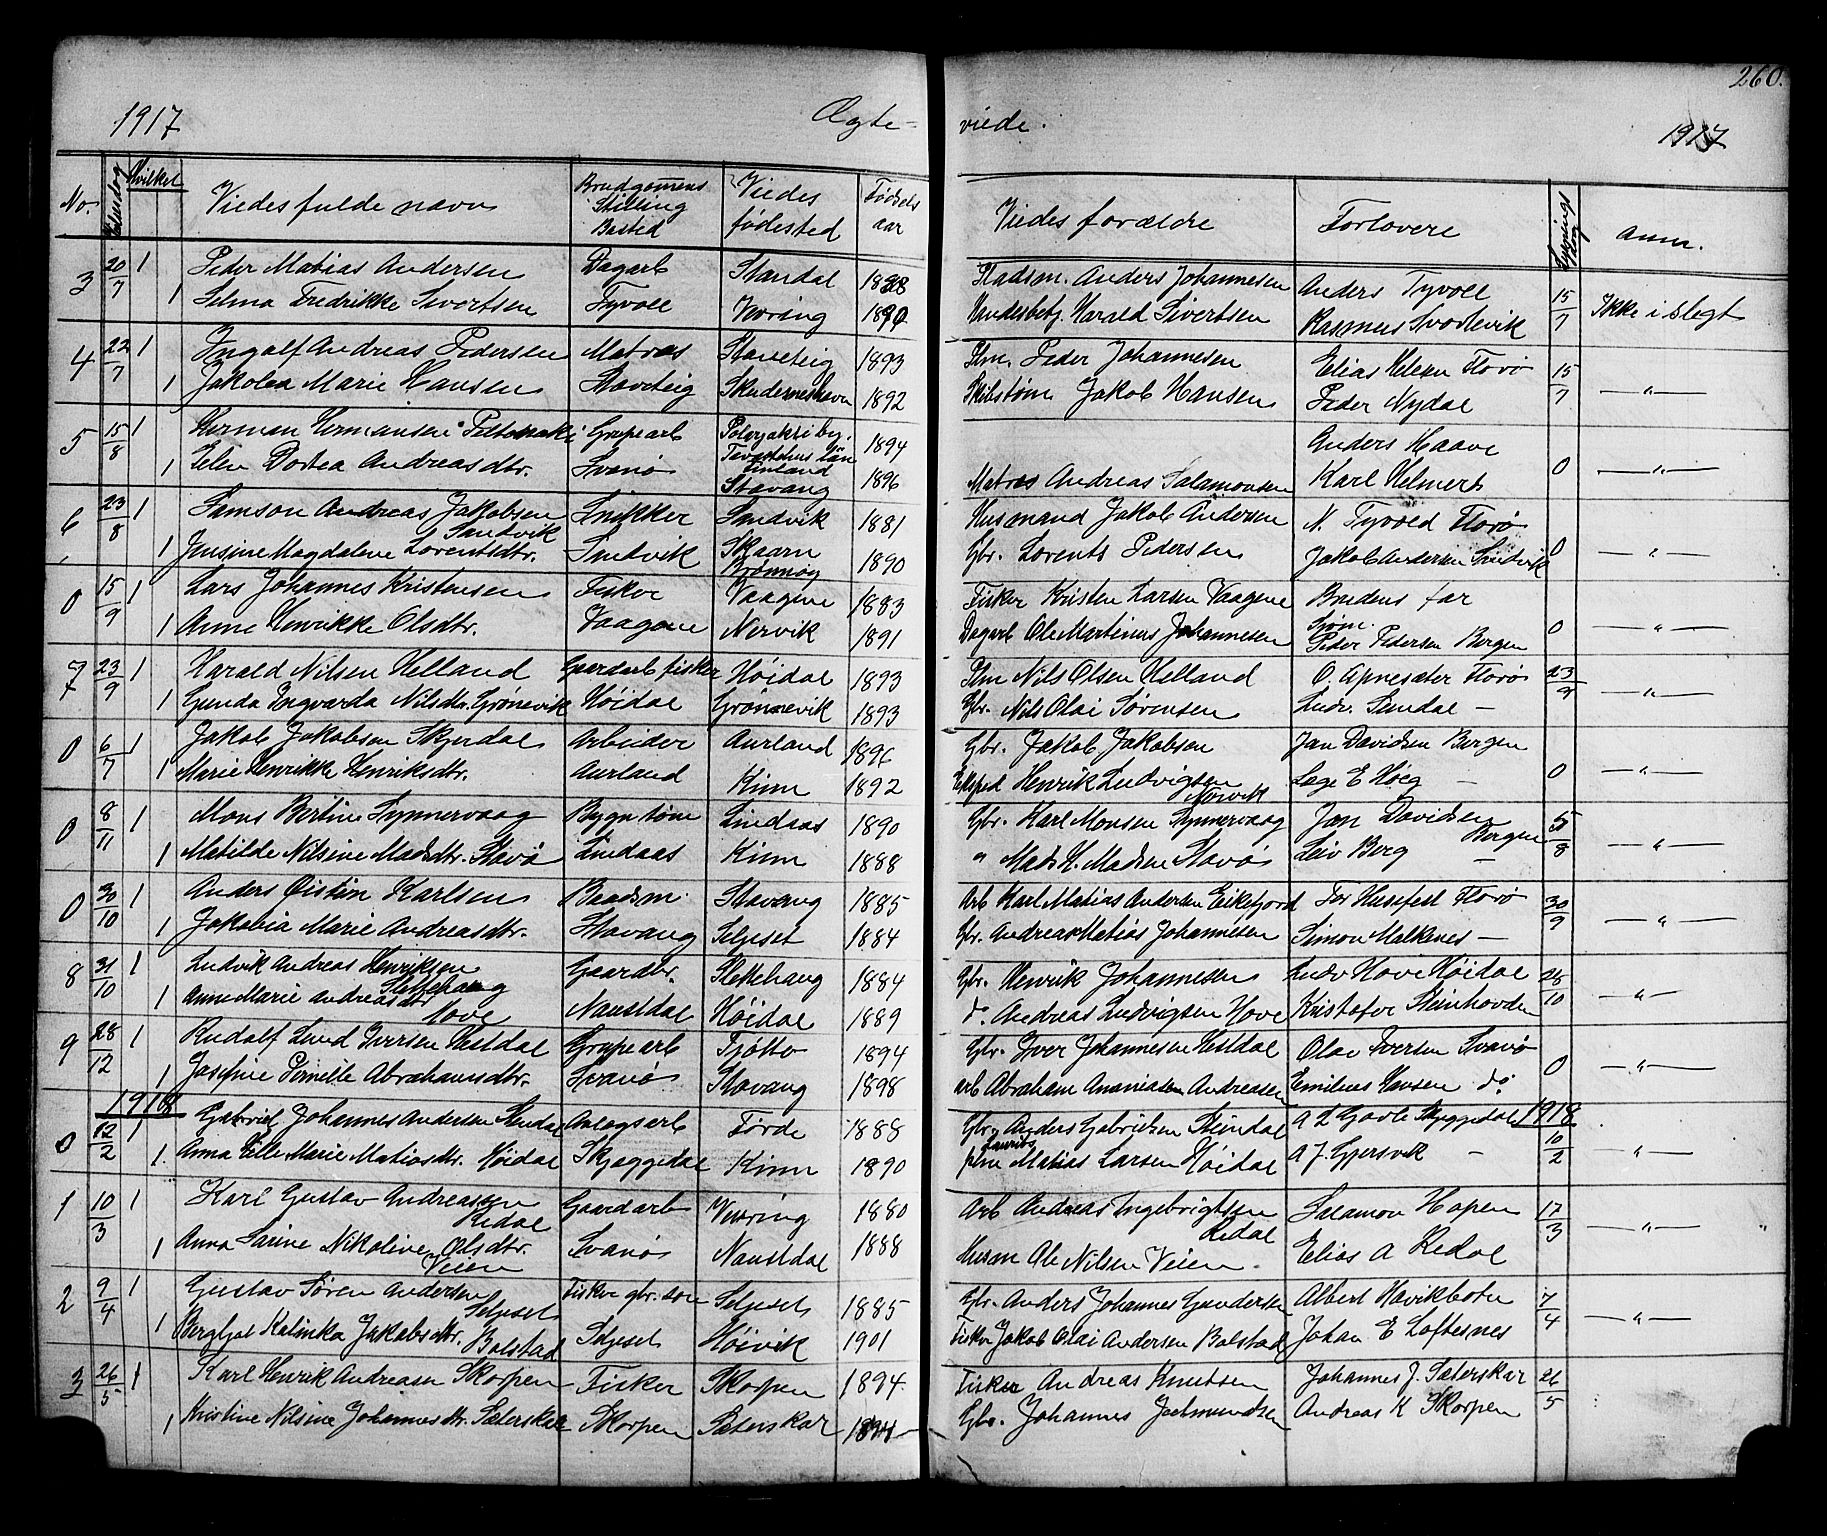 260.
1917 Ægte- viede. 1917
No. Hvilket Viedes fulde navn Brudgomens Stilling Bosted Viedes fødested Fødsels aar Viedes forældre Forlovere Lysnings dag Anm.
3 20/7 1 Peder Matias Andersen Dagarb Standal 1888 Pladsm. Anders Johannesen Anders Tyvoll 15/7 Ikke i slegt
1 Selma Fredrikke Sivertsen Tyvoll Vevring 1890 Underbetj. Harald Sivertsen Rasmus Svortevik
4 22/7 1 Ingolf Andreas Pedersen Matros Stavteig 1893 Plm. Peder Johannesen Elias Helsen Florø 15/7 — " —
1 Jakobea Marie Hansen Stavteig Skudeneshavn 1892 Skibstøm Jakob Hansen Peder Nydal
5 15/8 1 Herman Hermansen Grubearb by. Tavastehus län Finland 1894 Anders Haave 0 — " —
1 Elen Dortea Andreasdtr. Svanø Stavang 1896 Matros Andreas Salamonsen Karl Helmers
6 23/8 1 Samson Andreas Jakobsen Sandvik Snikker Sandvik 1881 Husmand Jakob Andersen N. Tyvold Florø 0 — " —
1 Jensine Magdalene Lorentsdtr. Sandvik Skaarn Brønnøy 1890 Gbr. Lorents Pedersen Jakob Andersen Sandvik
0 15/9 1 Lars Johannes Kristensen Fisker Vaagene 1883 Fisker Kristen Larsen Vaagene Brudens far 0 — " —
1 Anne Henrikke Olsdtr. Vaagene Nervik 1891 Dagarb Ole Martinus Johannesen Peder Pedersen Bergen
7 23/9 1 Harald Nilsen Helland Gaardarb fisker Høidal 1893 Plm Nils Olsen Helland O. Apnesæter Florø 23/9 — " —
1 Gunda Ingvarda Nilsdtr. Grønevik Høidal Grønnevik 1893 Gbr. Nils Olai Sørensen Ludv. Sundal —
0 6/7 1 Jakob Jakobsen Skjerdal Arbeider Aurland 1896 Gbr. Jakob Jakobsen Jan Davidsen Bergen 0 — " —
1 Marie Henrikke Henriksdtr. Aurland Kinn 1892 Eksped Henrik Ludvigsen Nørvik Lage E Høeg —
0 8/11 1 Mons Bertine Synnervaag Bygn tøm Lindaas 1890 Gbr. Karl Monsen Synnervaag Jan Davidsen Bergen 5/8 — " —
1 Matilde Nilsine Madsdtr. Stavø Lindaas Kinn 1888 " Mads H. Madsen Stavø Leiv Berg —
0 30/10 1 Anders Øistein Karlsen Baadsm. Stavang 1885 Arb Karl Matias Andersen Eikefjord Tor Husefest Florø 30/9 — " —
1 Jakobia Marie Andreasdtr. Stavang Seljeset 1884 Gbr. Andreas Matias Johannesen Simon Malkenes —
8 31/10 1 Ludvik Andreas Henriksen Slettehaug Gaardbr. Slettehaug 1884 Gbr. Henrik Johannesen Ludv Hove Høidal 28/10 — " —
1 Anne Marie Andreasdtr Hove Naustdal Høidal 1889 do. Andreas Ludvigsen Hove Kristofer Steinhovden
9 28/12 1 Rudolf Lund Iversen Hestdal Grubearb Tjøtto 1894 Gbr. Iver Johannesen Hestdal Olai Iversen Svanø 0 — " —
1 Josefine Pernille Abrahamsdtr. Svanø Stavang 1898 arb Abraham Ananiasen Andreasen Emilius Hansen do
1918 1918
0 12/2 1 Gabriel Johannes Andersen Steindal Anlegsarb Førde 1888 Gbr. Anders Gabrielsen Steindal A L Gaute Skjeggedal 10/2 — " —
1. Anna Elle Marie Matiasdtr. Høidal Skjeggedal Kinn 1890 plm Laurits Matias Larsen Høidal A J. Gjersvik —
1 10/3 1 Karl Gustav Andreassen Redal Gaardarb Vevring 1880 Arb Andreas Ingebrigtsen Redal Salamon Hopen 17/3 — " —
1 Anna Sarine Nikoline Olsdtr. Veien Svanø Naustdal 1888 Husm Ole Nilsen Veien. Elias A Redal
2 9/4 1 Gustav Søren Andersen Seljeset Fisker gbr. søn Seljeset 1885 Gbr. Anders Johannes Gundersen Albert Havikbotn 7/4 — " —
1 Bergljot Kalinka Jakobsdtr. Bolstad Seljeset Høivik 1901 Fisker Jakob Olai Andersen Bolstad Johan E Loftesnes
3 26/5 1 Karl Henrik Andreasen Skorpen Fisker Skorpen 1894. Fisker Andreas Knutsen Johannes J. Sæterskar 26/5
1 Kristine Nilsine Johannesdtr. Sæterskar Skorpen Sæterskar 1894 Gbr. Johannes Jetmundsen Andreas K Skorpen